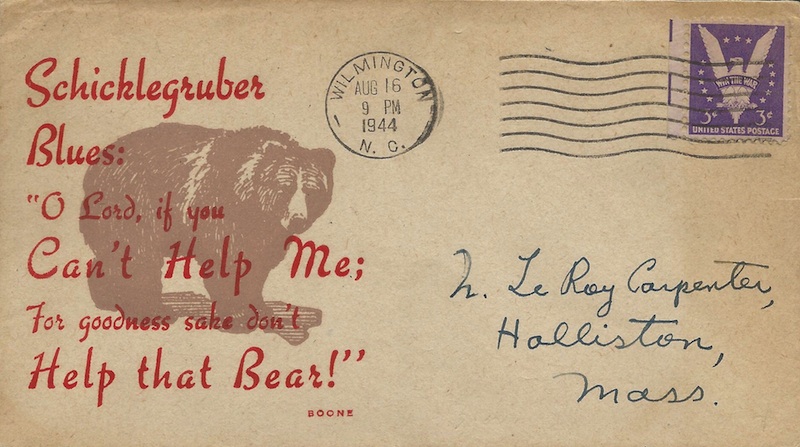 Schicklegruber
Blues:
"O Lord, if you
Can't Help Me;
For goodness sake don't
Help that Bear!"
BOONE
WILMINGTON
AUG 16
9 PM
1944
N. C.
WIN THE WAR
3¢ 3¢
UNITED STATES POSTAGE
N. Le Roy Carpenter,
Holliston,
Mass.